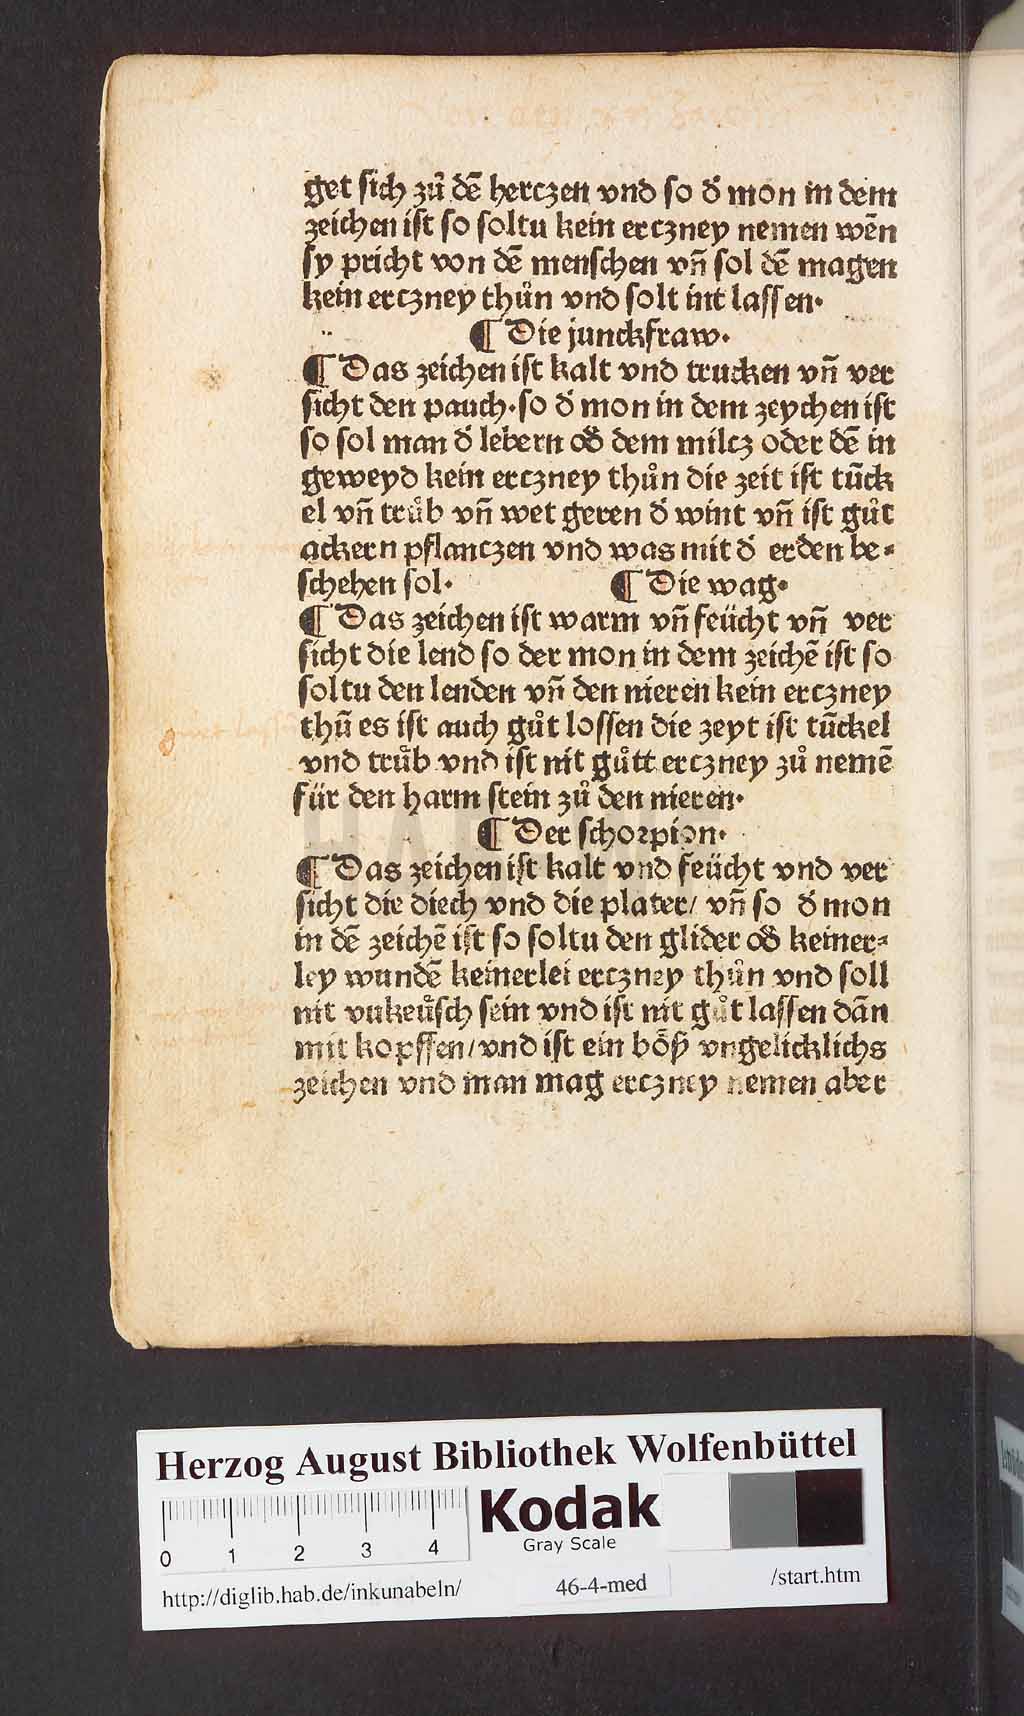 get sich zuͦ dē herczen vnd so d᷑ mon in dem
zeichen ist so soltu kein erczney nemen wēn
sy pricht von dē menschen vn̄ sol dē magen
kein erczney thuͦn vnd solt int lassen·
¶ Die junckfraw·
¶ Das zeichen ist kalt vnd trucken vn̄ ver
sicht den pauch·so d᷑ mon in dem zeychen ist
so sol man d᷑ lebern od᷑ dem milcz oder dē in
geweyd kein erczney thuͦn die zeit ist tūck
el vn̄ truͦb vn̄ wet geren d᷑ wint vn̄ ist guͦt
ackern pflanczen vnd was mit d᷑ erden be⸗
schehen sol· ¶ Die wag·
¶ Das zeichen ist warm vn̄ feücht vn̄ ver
sicht die lend so der mon in dem zeichē ist so
soltu den lenden vn̄ den nieren kein erczney
thū es ist auch guͦt lossen die zeyt ist tūckel
vnd truͤb vnd ist nit guͦtt erczney zuͦ nemē
für den harm stein zuͦ den nieren·
¶ Der schorpion·
¶ Das zeichen ist kalt vnd feücht vnd ver
sicht die diech vnd die plater/ vn̄ so d᷑ mon
in dē zeichē ist so soltu den glider od᷑ keiner⸗
ley wundē keinerlei erczney thuͦn vnd soll
nit vukeuͤsch sein vnd ist nit guͦt lassen dān
mit kopffen/vnd ist ein boͤß vngelicklichs
zeichen vnd man mag erczney nemen aber
HAB
Herzog August Bibliothek Wolfenbüttel
Kodak
Gray Scale
0 1 2 3 4
http://diglib.hab.de/inkunabeln/ 46-4-med /start.htm